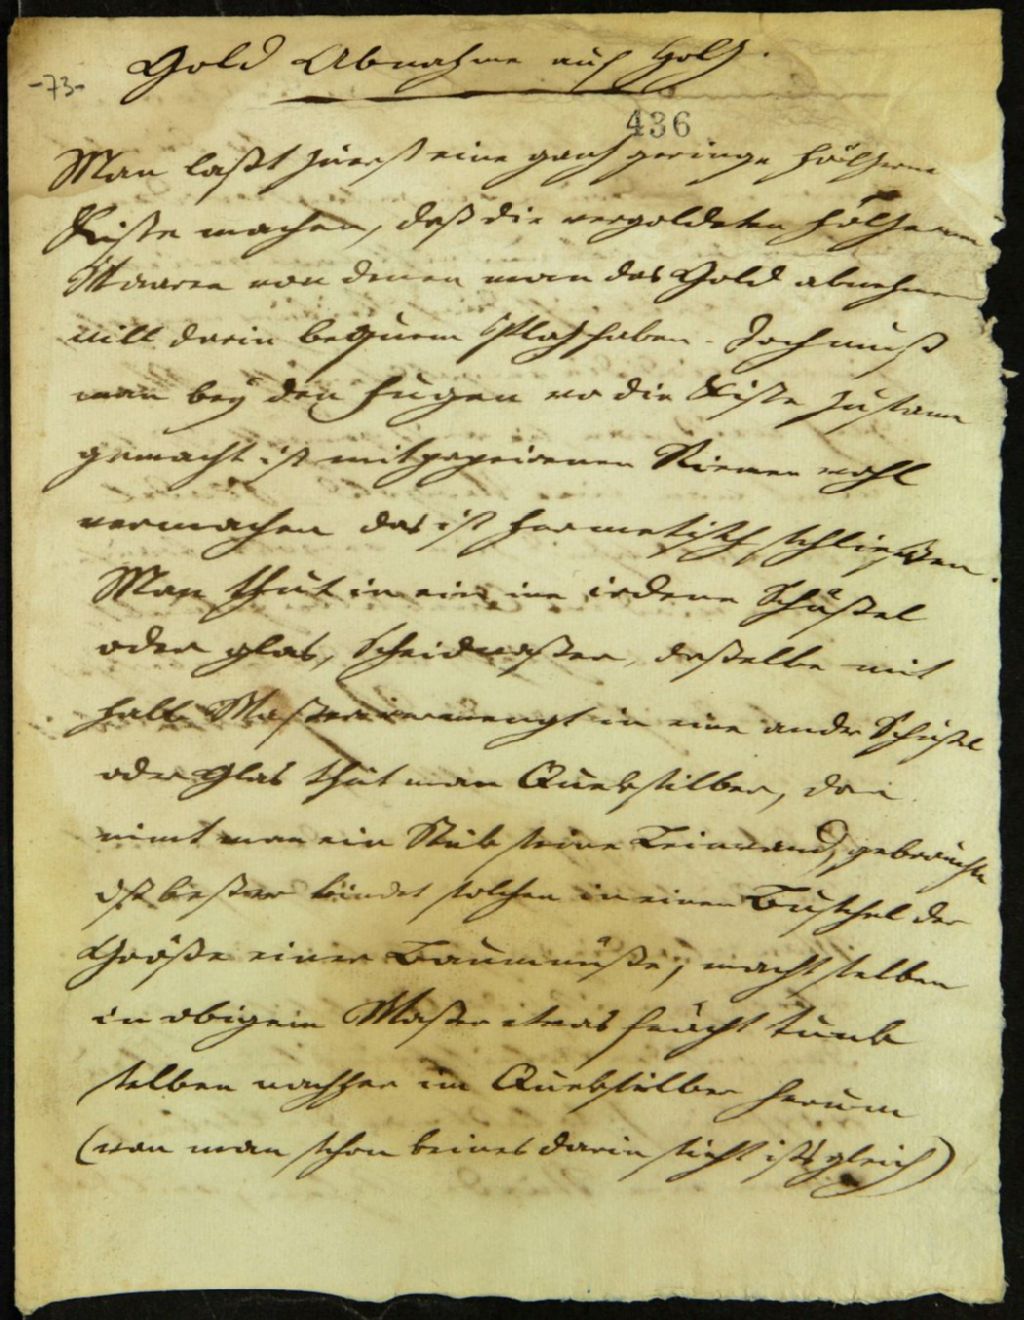 Gold Abnahme auf Holz.
-73-
436
Man laßt zuerst eine ganz geringe hölzerne
Kiste machen, daß die vergoldeten hölzernen
Waaren von denen man das Gold abnehmen
will darin bequem Platz haben. Doch muß
man bey den Fugen wo die Kiste zusamen
gemacht ist mit papeirenen Riemen wohl
vermachen das ist hermetisch schließen.
Man thut in ein irdene Schüßel
oder glas, Scheidwaßer, daßelbe mit
halb Waßer vermengt in eine andre Schüßel
oder Glas thut man Queksilber, dan
nimt man ein Stük feine Leinwand, gebrauchte
ist beßer bindet solchen in einen Buschel der
Größe einer Baumnuße, macht selben
in obigem Waßer etwas feücht tunk
selben nachher im Queksilber herum
(wen man schon keines darin sieht ist's gleich)